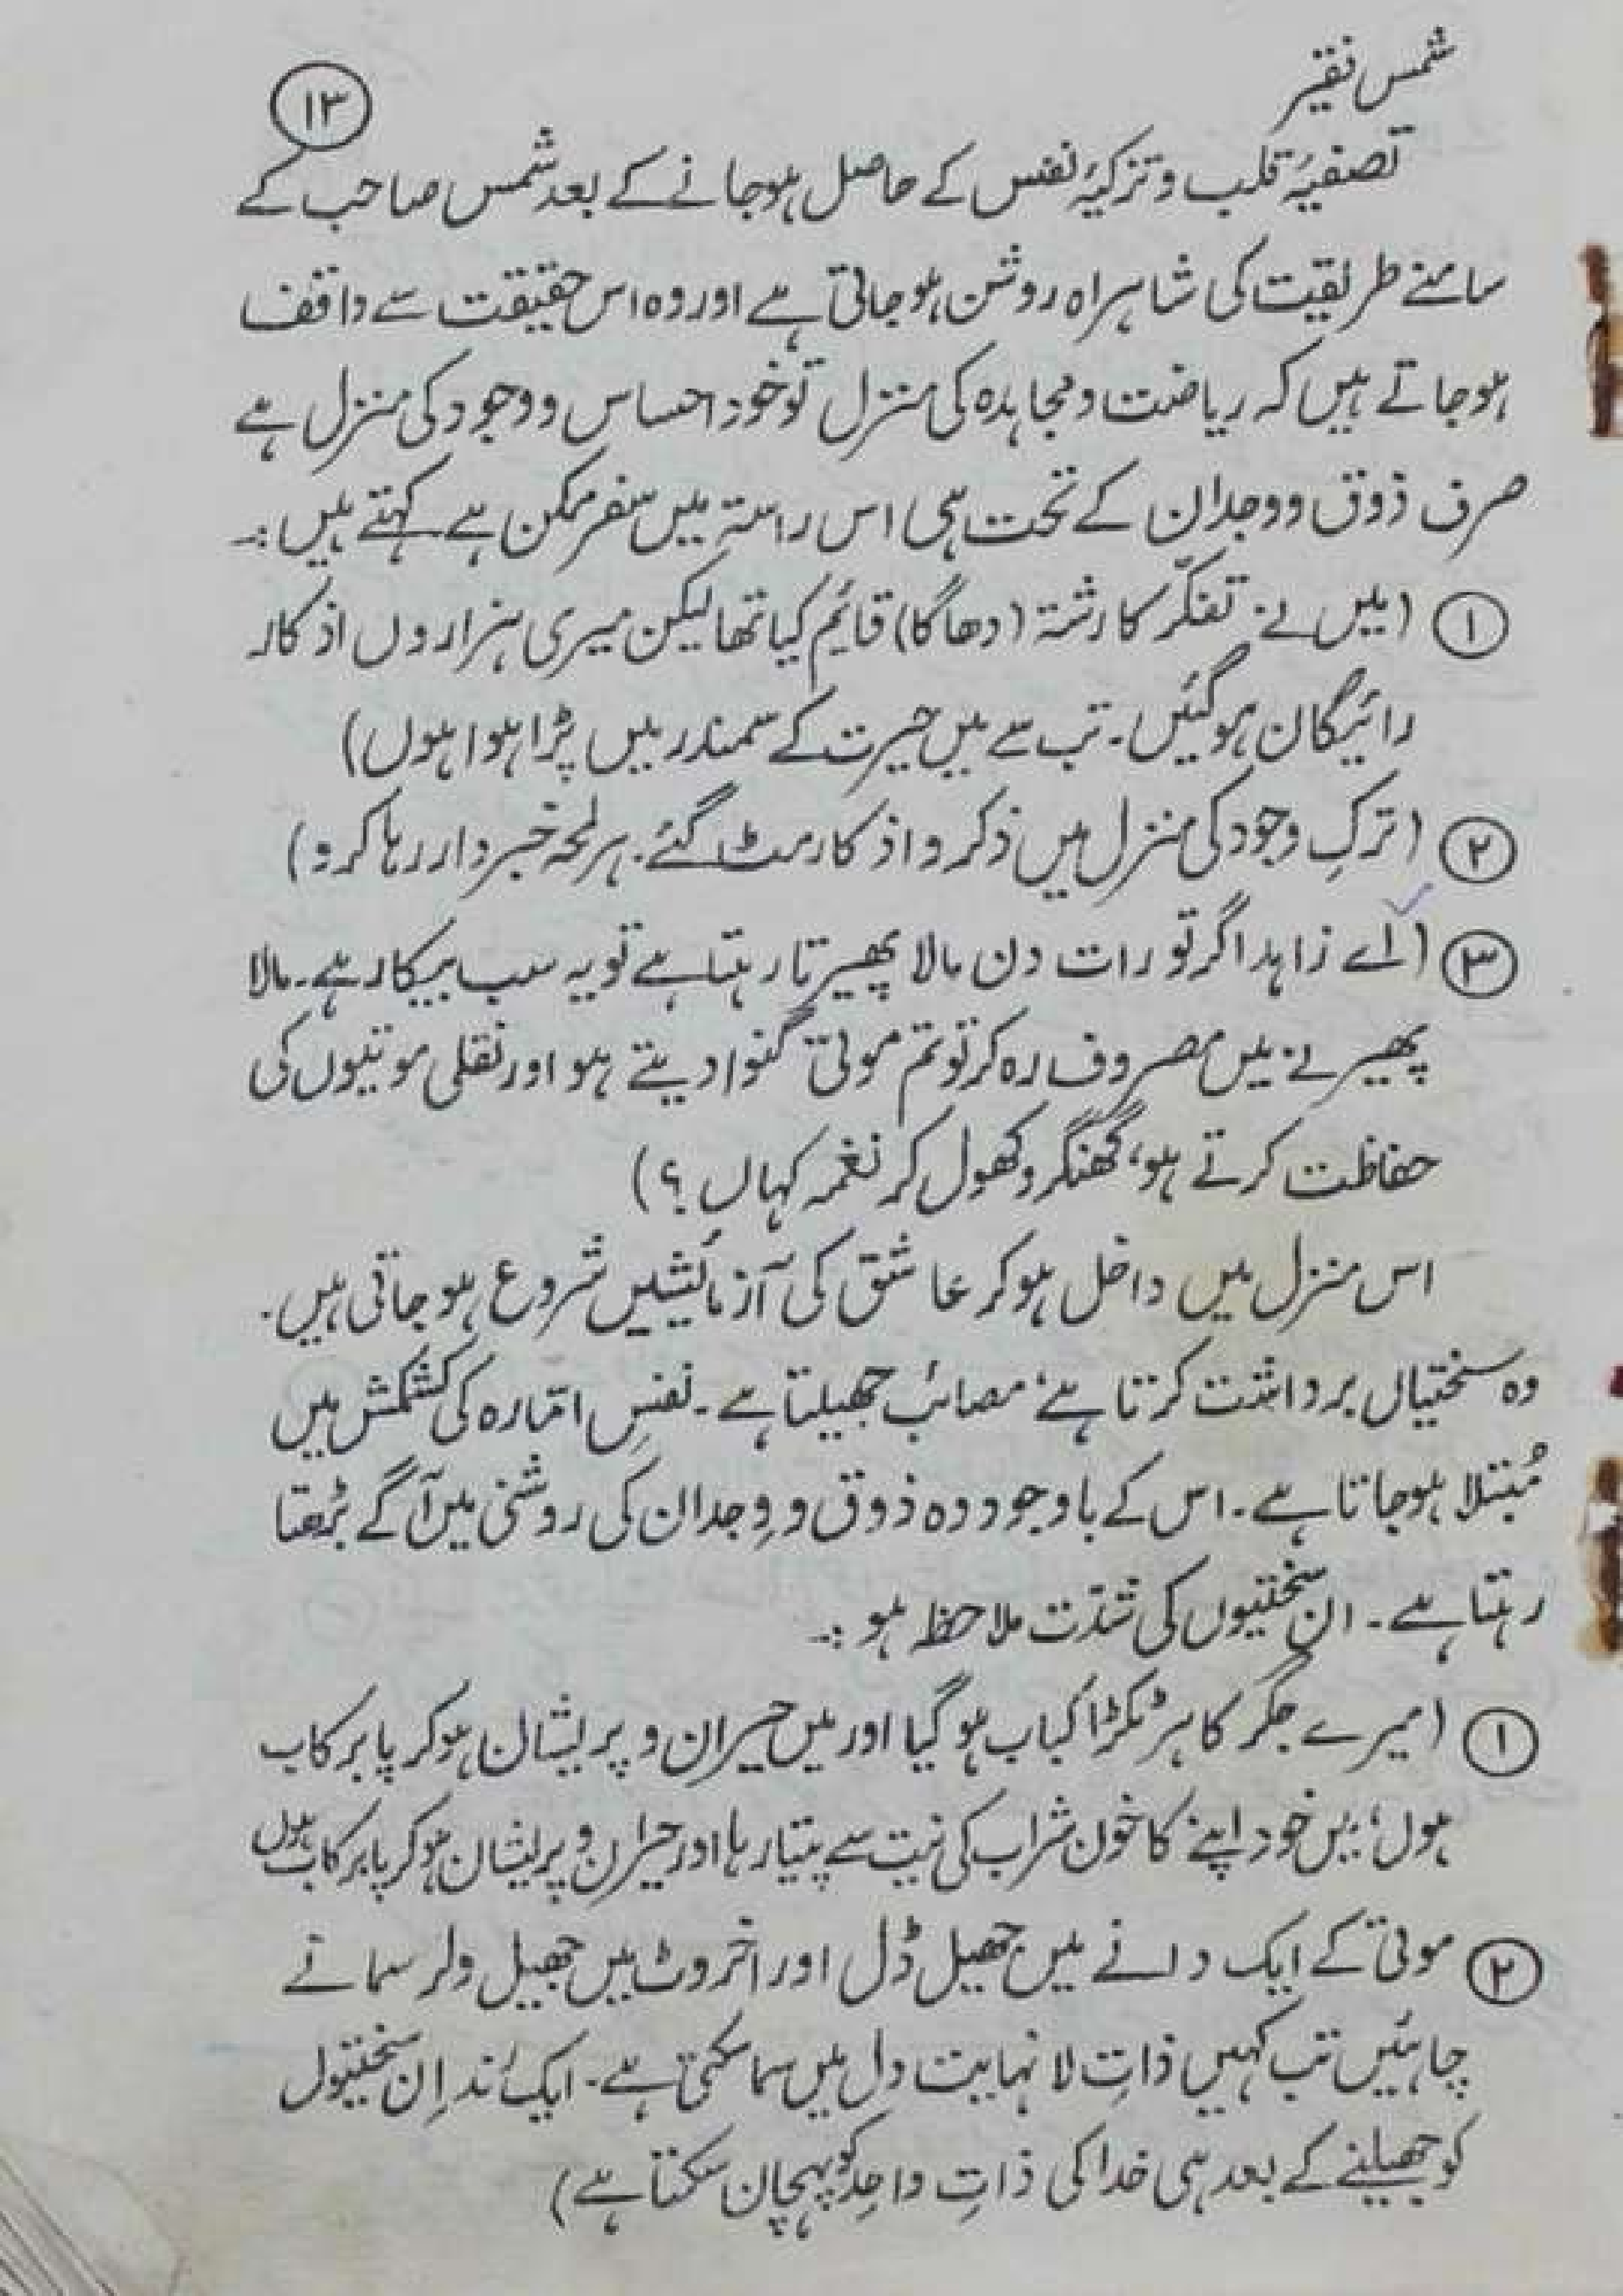 شمس فقیر
۱۳
تصفیۂ قلب و تزکیۂ نفس کے حاصل ہوجانے کے بعد شمس صاحب کے
سامنے طریقت کی شاہراہ روشن ہوجاتی ہے اور وہ اس حقیقت سے واقف
ہوجاتے ہیں کہ ریاضت و مجاہدہ کی منزل تو خود احساس و وجود کی منزل ہے
صرف ذوق و وجدان کے تحت ہی اس راستہ میں سفر ممکن ہے کہتے ہیں :۔
۱ (میں نے تفکّر کا رشتہ (دھاگا) قائیم کیا تھا لیکن میری ہزاروں اذکار
رائیگان ہوگئیں۔ تب سے میں حیرت کے سمندر میں پڑا ہوا ہوں)
۲ (ترکِ وجود کی منزل میں ذکر و اذکار مٹ گئے۔ ہر لمحہ خبردار رہا کرو)
۳ (اے زاہد اگر تو رات دن مالا پھیرتا رہتا ہے تو یہ سب بیکار ہے۔ مالا
پھیرنے میں مصروف رہ کر تو تم موتی گنوا دیتے ہو اور نقلی موتیوں کی
حفاظت کرتے ہو، گھنگرو کھول کر نغمہ کہاں ؟)
اس منزل میں داخل ہوکر عاشق کی آزمائشیں شروع ہوجاتی ہیں۔
وہ سختیاں برداشت کرتا ہے، مصائب جھیلتا ہے۔ نفسِ امّارہ کی کشمکش میں
مُبتلا ہوجاتا ہے۔ اس کے باوجود وہ ذوق و وِجدان کی روشنی میں آگے بڑھتا
رہتا ہے۔ ان سختیوں کی شدّت ملاحظ ہو :۔
۱ (میرے جگر کا ہر ٹکڑا کباب ہوگیا اور میں حیران و پریشان ہوکر پابرکاب
ہوں، میں خود اپنے کا خون شراب کی نیت سے پیتا رہا اور حیران و پریشان ہوکر پابرکاب ہوں
۲ موتی کے ایک دانے میں جھیل ڈل اور اخروٹ میں جھیل ولر سمانے
چاہئیں تب کہیں ذاتِ لانہایت دل میں سما سکتی ہے۔ ایک اِن سختیوں
کو جھیلنے کے بعد ہی خدا کی ذاتِ واحد کو پہچان سکتا ہے)